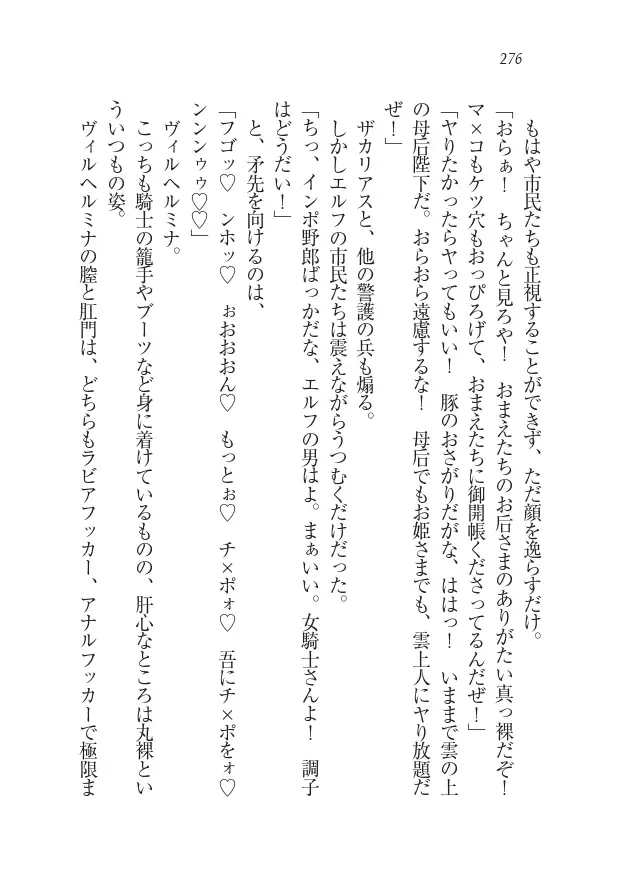 276
もはや市民たちも正視することができず、ただ顔を逸らすだけ。
「おらぁ！　ちゃんと見ろや！　おまえたちのお后さまのありがたい真っ裸だぞ！
マ×コもケツ穴もおっぴろげて、おまえたちに御開帳くださってるんだぜ！」
「ヤりたかったらヤってもいい！　豚のおさがりだがな、ははっ！　いままで雲の上
の母后陛下だ。おらおら遠慮するな！　母后でもお姫さまでも、雲上人にヤり放題だ
ぜ！」
ザカリアスと、他の警護の兵も煽る。
しかしエルフの市民たちは震えながらうつむくだけだった。
「ちっ、インポ野郎ばっかだな、エルフの男はよ。まぁいい。女騎士さんよ！　調子
はどうだい！」
と、矛先を向けるのは、
「フゴッ♡　ンホッ♡　ぉおおおん♡　もっとぉ♡　チ×ポォ♡　吾にチ×ポをォ♡
ンンンゥゥ♡♡」
ヴィルヘルミナ。
こっちも騎士の籠手やブーツなど身に着けているものの、肝心なところは丸裸とい
ういつもの姿。
ヴィルヘルミナの膣と肛門は、どちらもラビアフッカー、アナルフッカーで極限ま